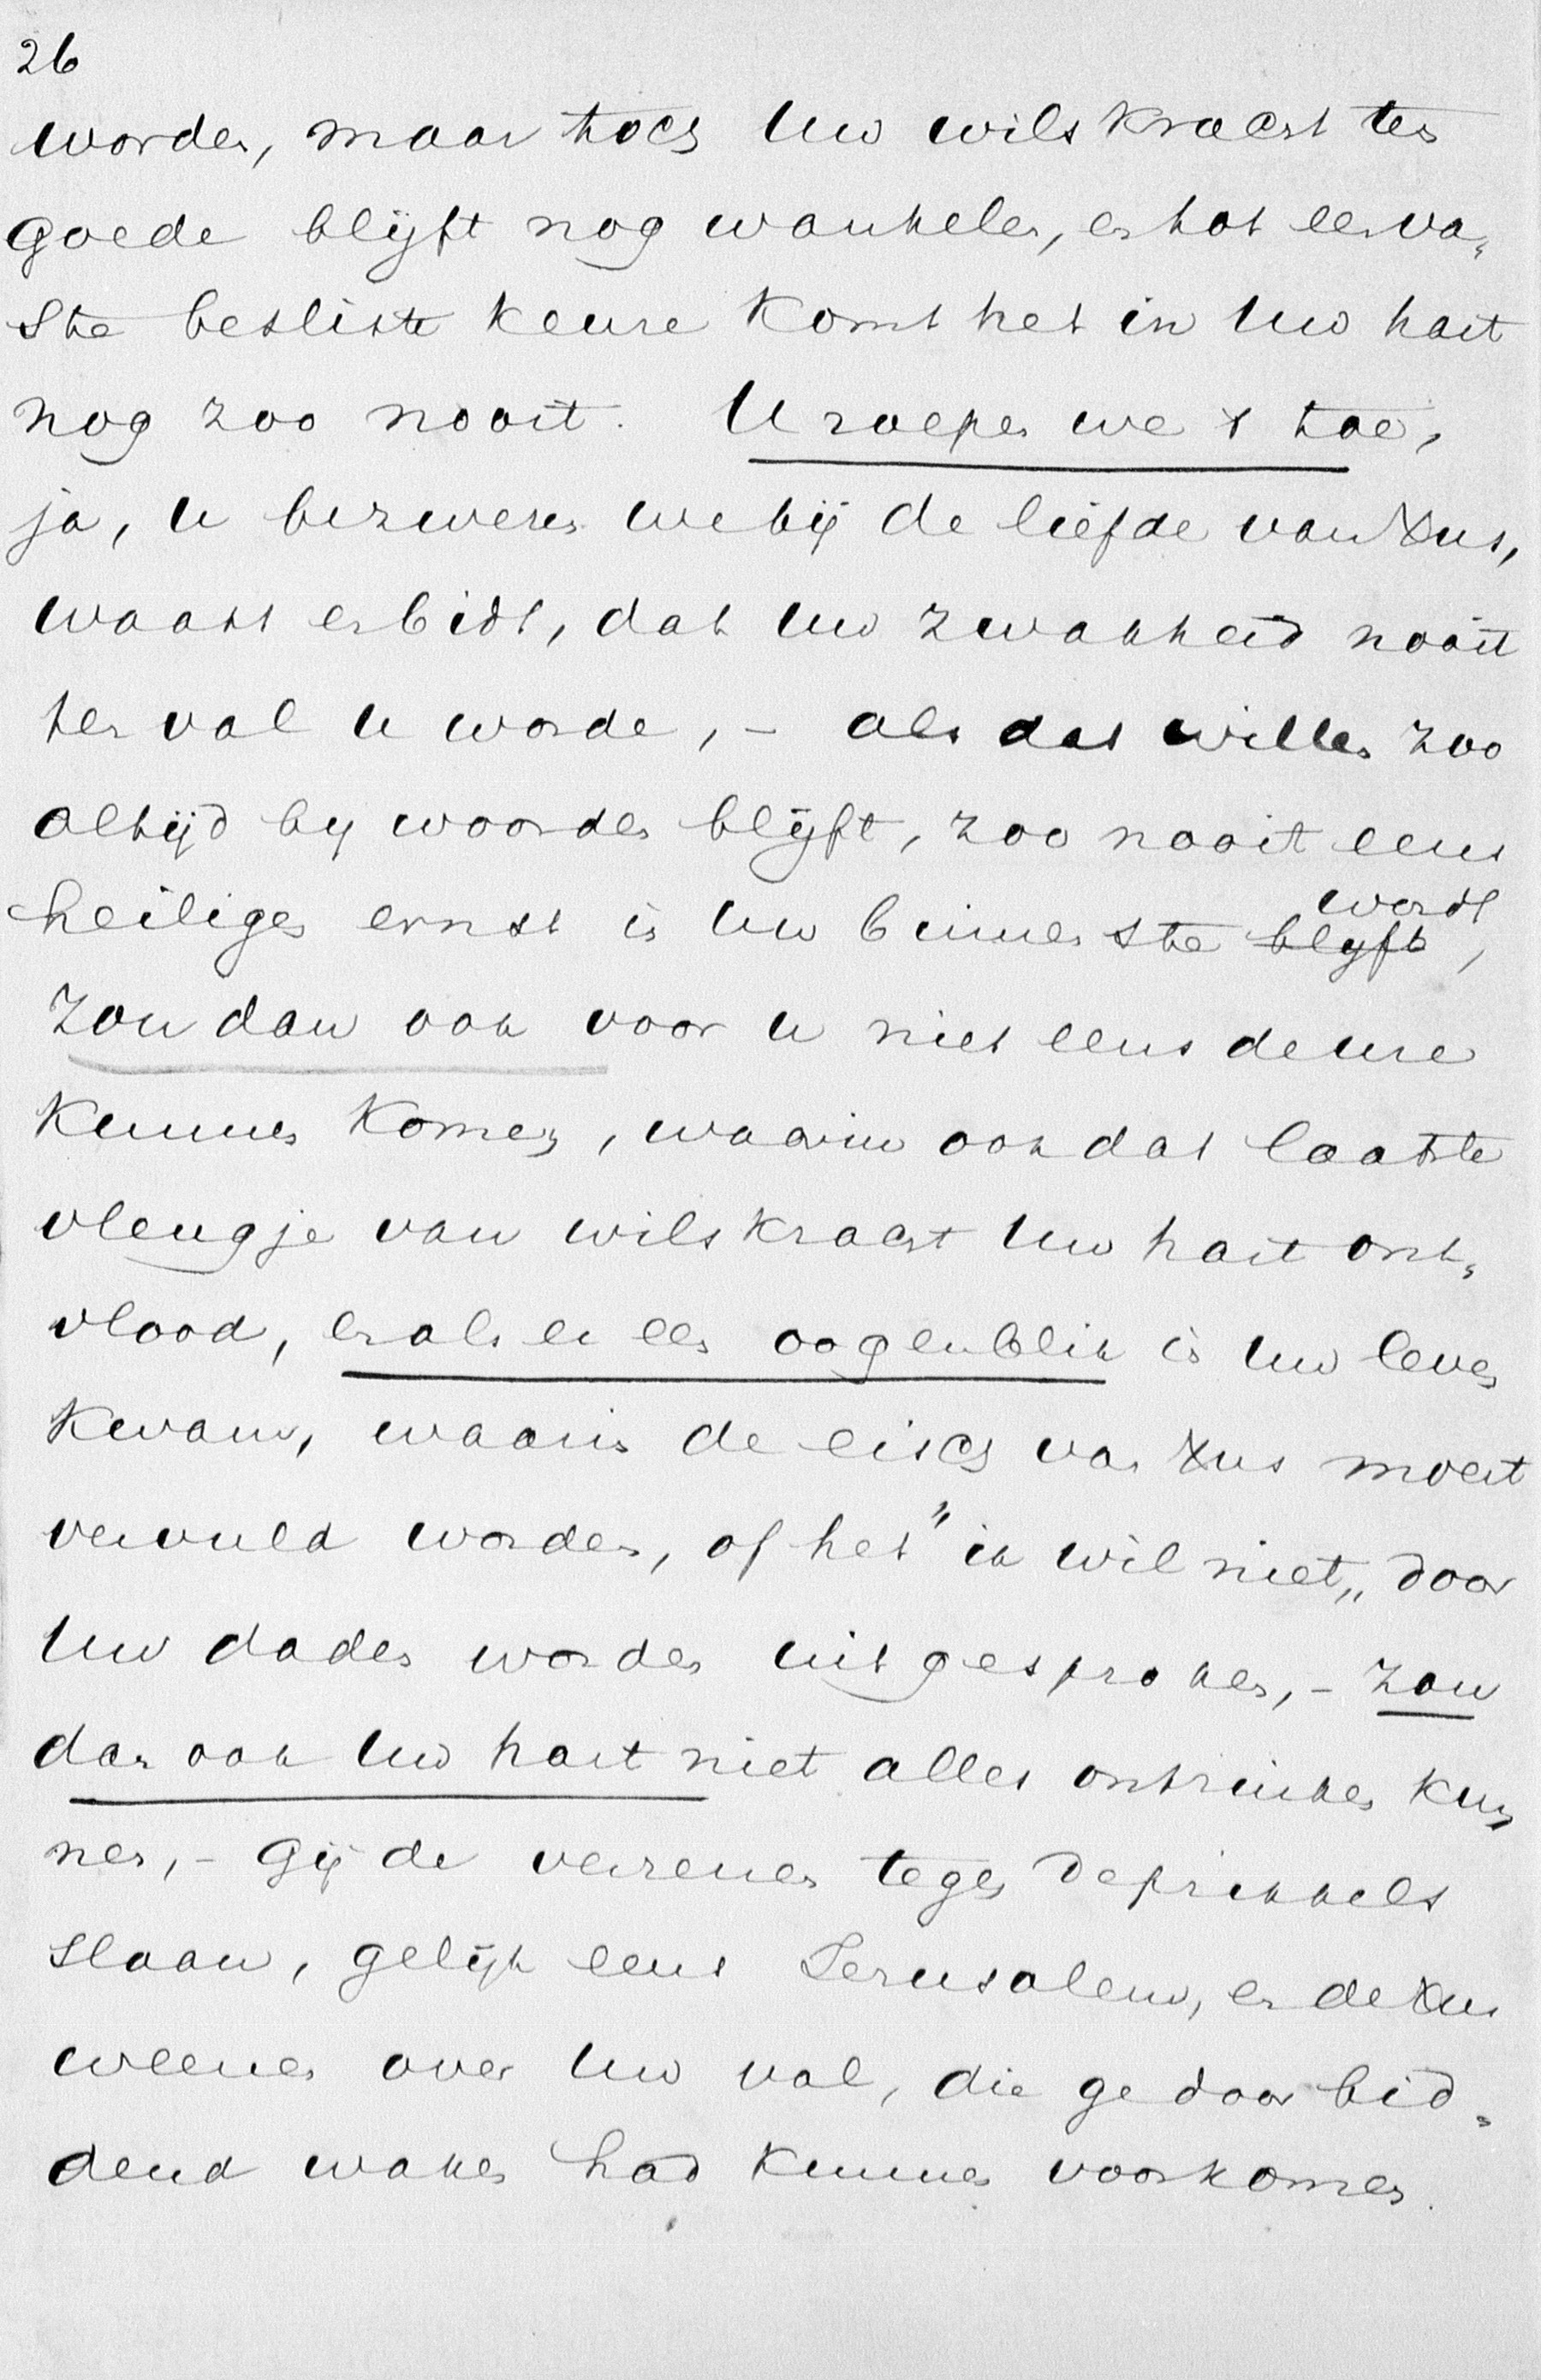 26
worden, maar toch Uw wilskracht ten
goede blijft nog wankelen, en tot een va„
ste besliste keure komt het in Uw hart
nog zoo nooit. U roepen we 't toe,
ja, u bezweren we bij de liefde van Xus,
waakt en bidt, dat Uw zwakheid nooit
ten val u worde, – als dat willen zoo
altijd by woorden blijft, zoo nooit eens
heilige ernst in Uw binnenste ~~blyft~~ wordt,
Zou dan ook voor u niet eens de ure
kunnen komen, waarin ook dat laatste
vleugje van wilskracht Uw hart ont„
vlood, en als er een oogenblik in Uw leven
kwam, waarin de eisch van Xus moest
vervuld worden, of het "ik wil niet„ door
Uw daden worden uitgesproken, – zou
dan ook Uw hart niet alles ontzinken kun
nen, – Gij de verzenen tegen de prikkels
slaan, gelijk eens Jerusalem, en de Xus
weenen over Uw val, die ge door bid„
dend waken had kunnen voorkomen.